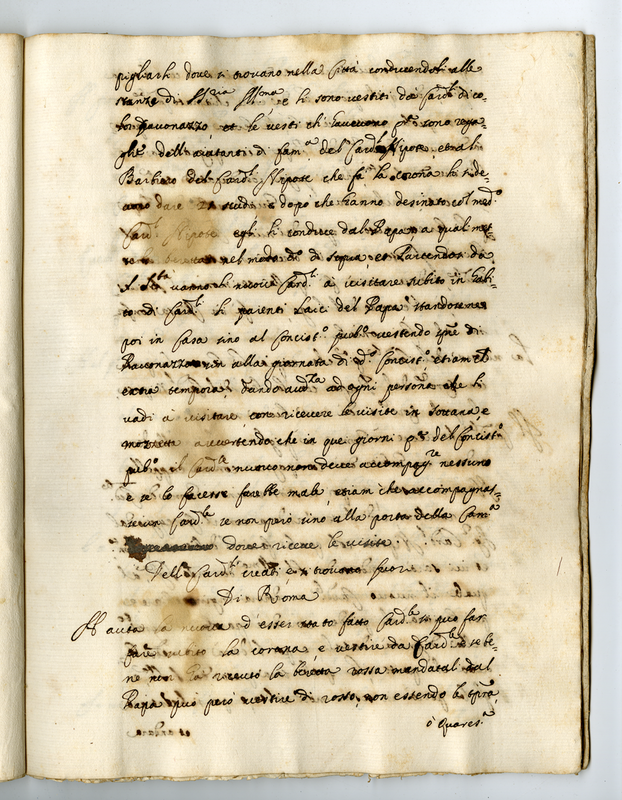 pigliarli dove si trovano nella Città conducendoli alle
stanze di S. Sria Illma, e li sono vestiti da Cardli di co=
lor pavonazzo et le vesti ch' havevono pa sono rega=
late dell' aiutanti di Fama del Cardl Nipote et al
Barbiero del Cardl Nipote che fa la corona li si de=
vano dare scudi, e dopò che hanno desinato col medo
Cardl Nipote egli li conduce dal Papa, a qual met=
te la beretta nel modo do di sopra, et licentiati da
S. Stà vanno li nuovi Cardli à visitare subito in habi=
to di Cardli li parenti laici del Papa standosene
poi in Casa sino al Concisto pubo vestendo
Pavonazzo alla giornata di do Concisto etiam
extra tempora, dando audza ad ogni persona che li
vadi à visitare, con ricevere le visite in sottana, e
mozzetta avvertendo che in quei giorni pa del Concisto
pubo il Cardle nuovo non deve accompagre nessuno
e se lo facesse farebbe male, etiam che accompagnas=
se un Cardle se non però sino alla porta della Cama
dove riceve le visite.
Delli Cardli creati, e si trovano fuori
Di Roma
Havuta la nuova d' esser stato fatto Cardle si può far
fare subito la corona, e vestire da Cardle se be=
ne non ha ricevuto la beretta rossa mandatali dal
Papa può però vestire di rosso, non essendo
ò Quaresa